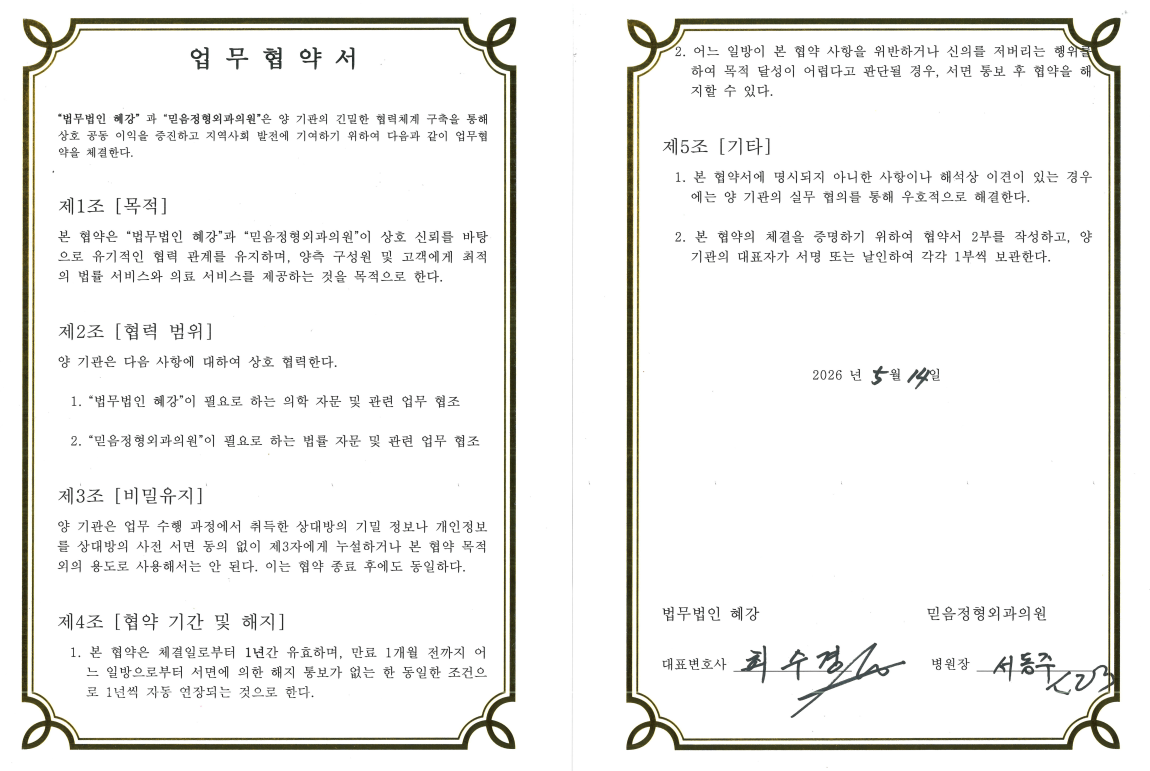 업무협약서
“법무법인 혜강” 과 “믿음정형외과의원”은 양 기관의 긴밀한 협력체계 구축을 통해
상호 공동 이익을 증진하고 지역사회 발전에 기여하기 위하여 다음과 같이 업무협
약을 체결한다.
제1조 [목적]
본 협약은 “법무법인 혜강”과 “믿음정형외과의원”이 상호 신뢰를 바탕
으로 유기적인 협력 관계를 유지하며, 양측 구성원 및 고객에게 최적
의 법률 서비스와 의료 서비스를 제공하는 것을 목적으로 한다.
제2조 [협력 범위]
양 기관은 다음 사항에 대하여 상호 협력한다.
1. “법무법인 혜강”이 필요로 하는 의학 자문 및 관련 업무 협조
2. “믿음정형외과의원”이 필요로 하는 법률 자문 및 관련 업무 협조
제3조 [비밀유지]
양 기관은 업무 수행 과정에서 취득한 상대방의 기밀 정보나 개인정보
를 상대방의 사전 서면 동의 없이 제3자에게 누설하거나 본 협약 목적
외의 용도로 사용해서는 안 된다. 이는 협약 종료 후에도 동일하다.
제4조 [협약 기간 및 해지]
1. 본 협약은 체결일로부터 1년간 유효하며, 만료 1개월 전까지 어
느 일방으로부터 서면에 의한 해지 통보가 없는 한 동일한 조건으
로 1년씩 자동 연장되는 것으로 한다.
2. 어느 일방이 본 협약 사항을 위반하거나 신의를 저버리는 행위를
하여 목적 달성이 어렵다고 판단될 경우, 서면 통보 후 협약을 해
지할 수 있다.
제5조 [기타]
1. 본 협약서에 명시되지 아니한 사항이나 해석상 이견이 있는 경우
에는 양 기관의 실무 협의를 통해 우호적으로 해결한다.
2. 본 협약의 체결을 증명하기 위하여 협약서 2부를 작성하고, 양
기관의 대표자가 서명 또는 날인하여 각각 1부씩 보관한다.
2026 년 5월 14일
법무법인 혜강 믿음정형외과의원
대표변호사 최수경 병원장 서동주